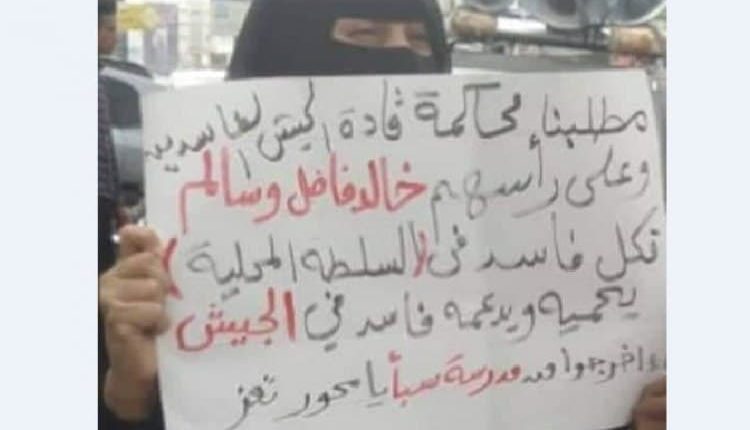 مطلبنا محاكمة قادة الجيش الفاسدين
وعلى رأسهم خالد فاضل وسالم
فكل فاسد في (السلطة المحلية)
يحميه ويدعمه فاسد في الجيش
اخرجوا من مدرسة سبأ يا محور تعز